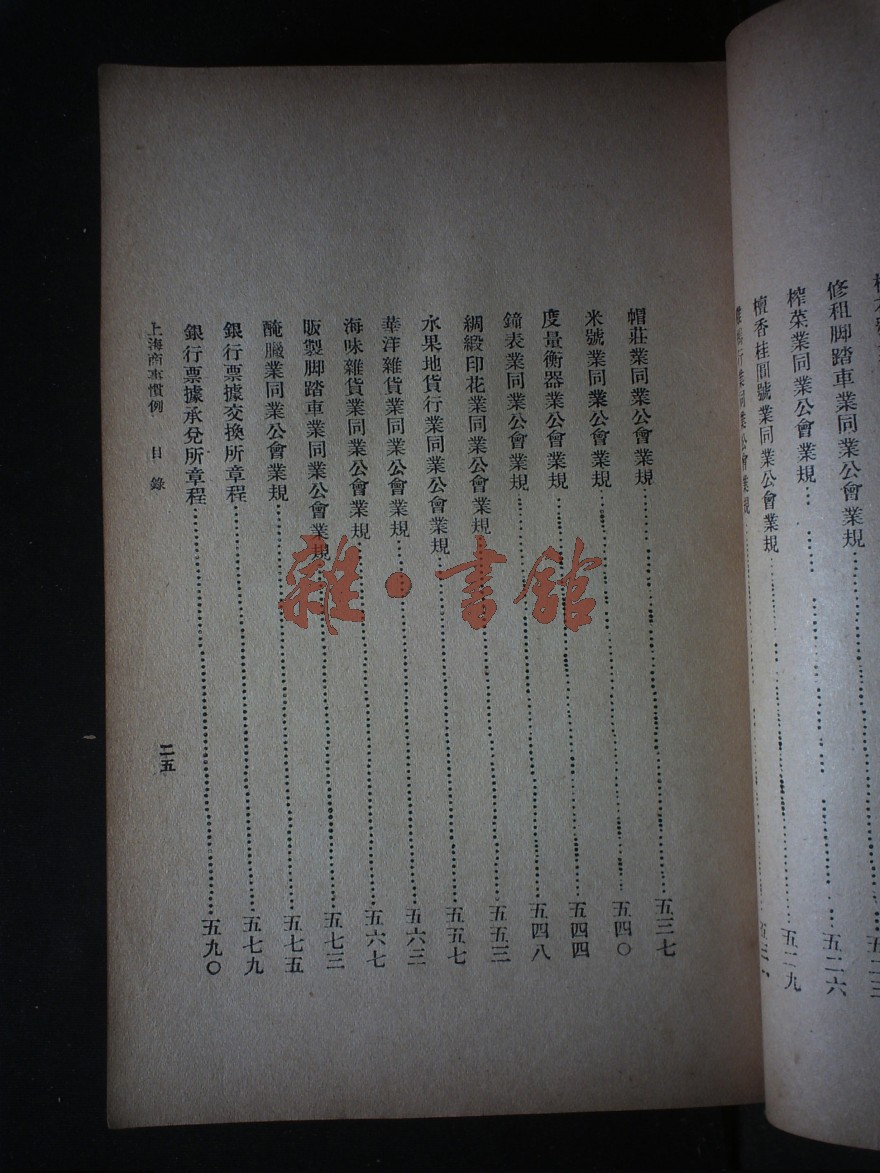 修租脚踏車業同業公會業規……五二六
榨菜業同業公會業規……五二九
檀香桂圓號業同業公會業規……
行業同業公會業規……
帽莊業同業公會業規……五三七
米號業同業公會業規……五四〇
度量衡器業公會業規……五四四
鐘表業同業公會業規……五四八
綢緞印花業同業公會業規……五五三
水果地貨行業同業公會業規……五五七
華洋雜貨業同業公會業規……五六三
海味雜貨業同業公會業規……五六七
販製脚踏車業同業公會業規……五七三
醃臘業同業公會業規……五七五
銀行票據交換所章程……五七九
銀行票據承兌所章程……五九〇
上海商事慣例 目錄 二五
雜·書館